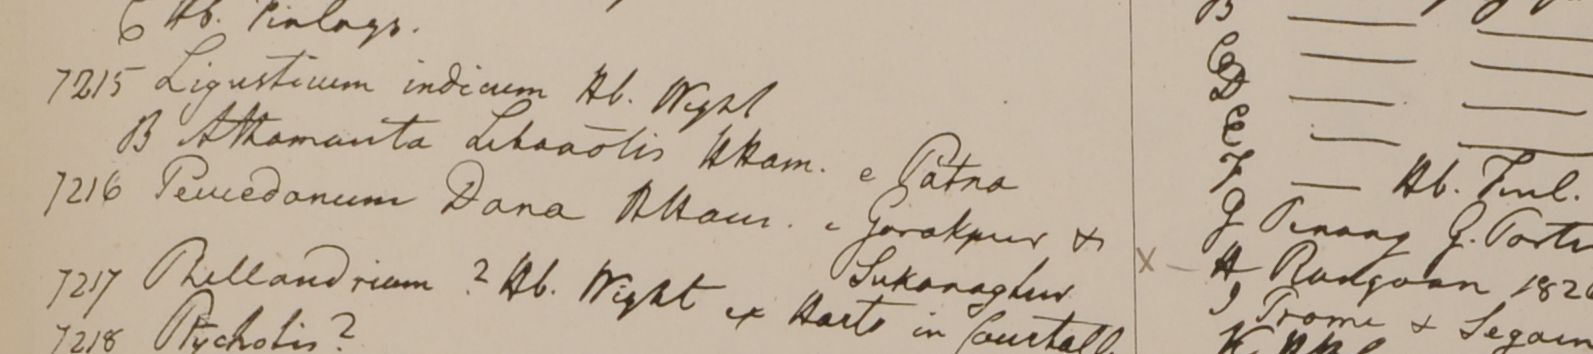 C Hb. Finlays.
7215 Ligusticum indicum Hb. Wight
B Athamanta Libanotis HHam. e Patna
7216 Peucedanum Dana HHam. e Gorakpur &
Sukanaghur
7217 Phellandrium? Hb. Wight ex Horto in Courtall
7218 Ptychotis?
B
C
D
E
F — Hb. Finl.
G Penang G. Porte
X – H Rangoon 182
I Prome & Segain
K HBC